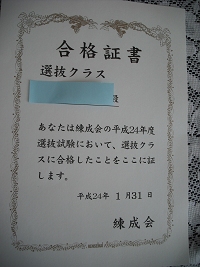 合格証書
選抜クラス
殿
あなたは練成会の平成24年度
選抜試験において、選抜クラ
スに合格したことをここに証
します。
平成24年 1月31日
練成会